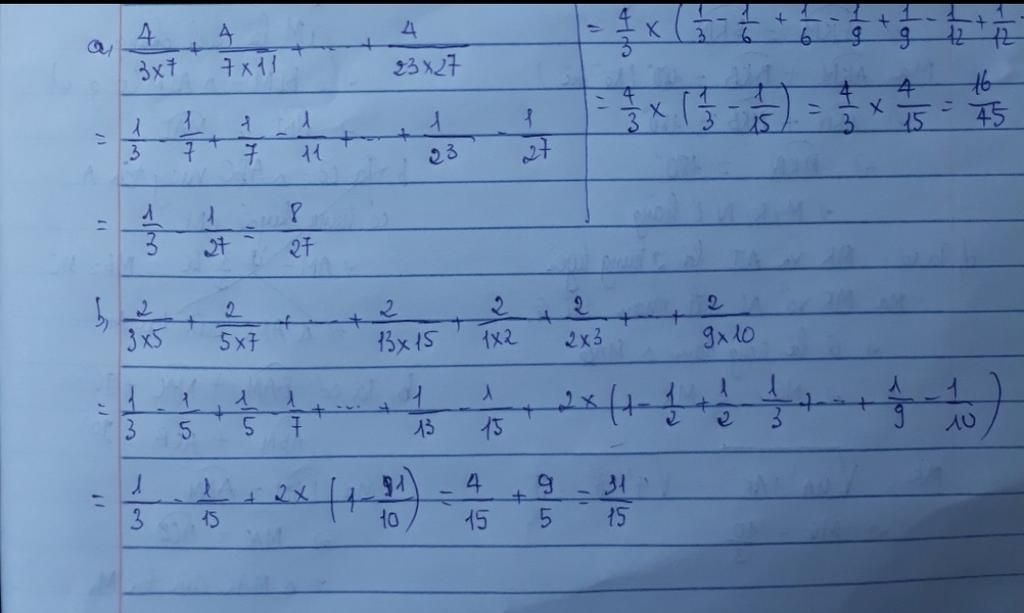 a, 4/3×7 + 4/7×11 + ... + 4/23×27
= 1/3 - 1/7 + 1/7 - 1/11 + ... + 1/23 - 1/27
= 1/3 - 1/27 = 8/27
= 4/3 × (1/3 - 1/6 + 1/6 - 1/9 + 1/9 - 1/12 + 1/12 -
= 4/3 × (1/3 - 1/15) = 4/3 × 4/15 = 16/45
b, 2/3×5 + 2/5×7 + ... + 2/13×15 + 2/1×2 + 2/2×3 + ... + 2/9×10
= 1/3 - 1/5 + 1/5 - 1/7 + ... + 1/13 - 1/15 + 2× (1 - 1/2 + 1/2 - 1/3 + ... + 1/9 - 1/10)
= 1/3 - 1/15 + 2× (1 - 1/10) = 4/15 + 9/5 = 31/15